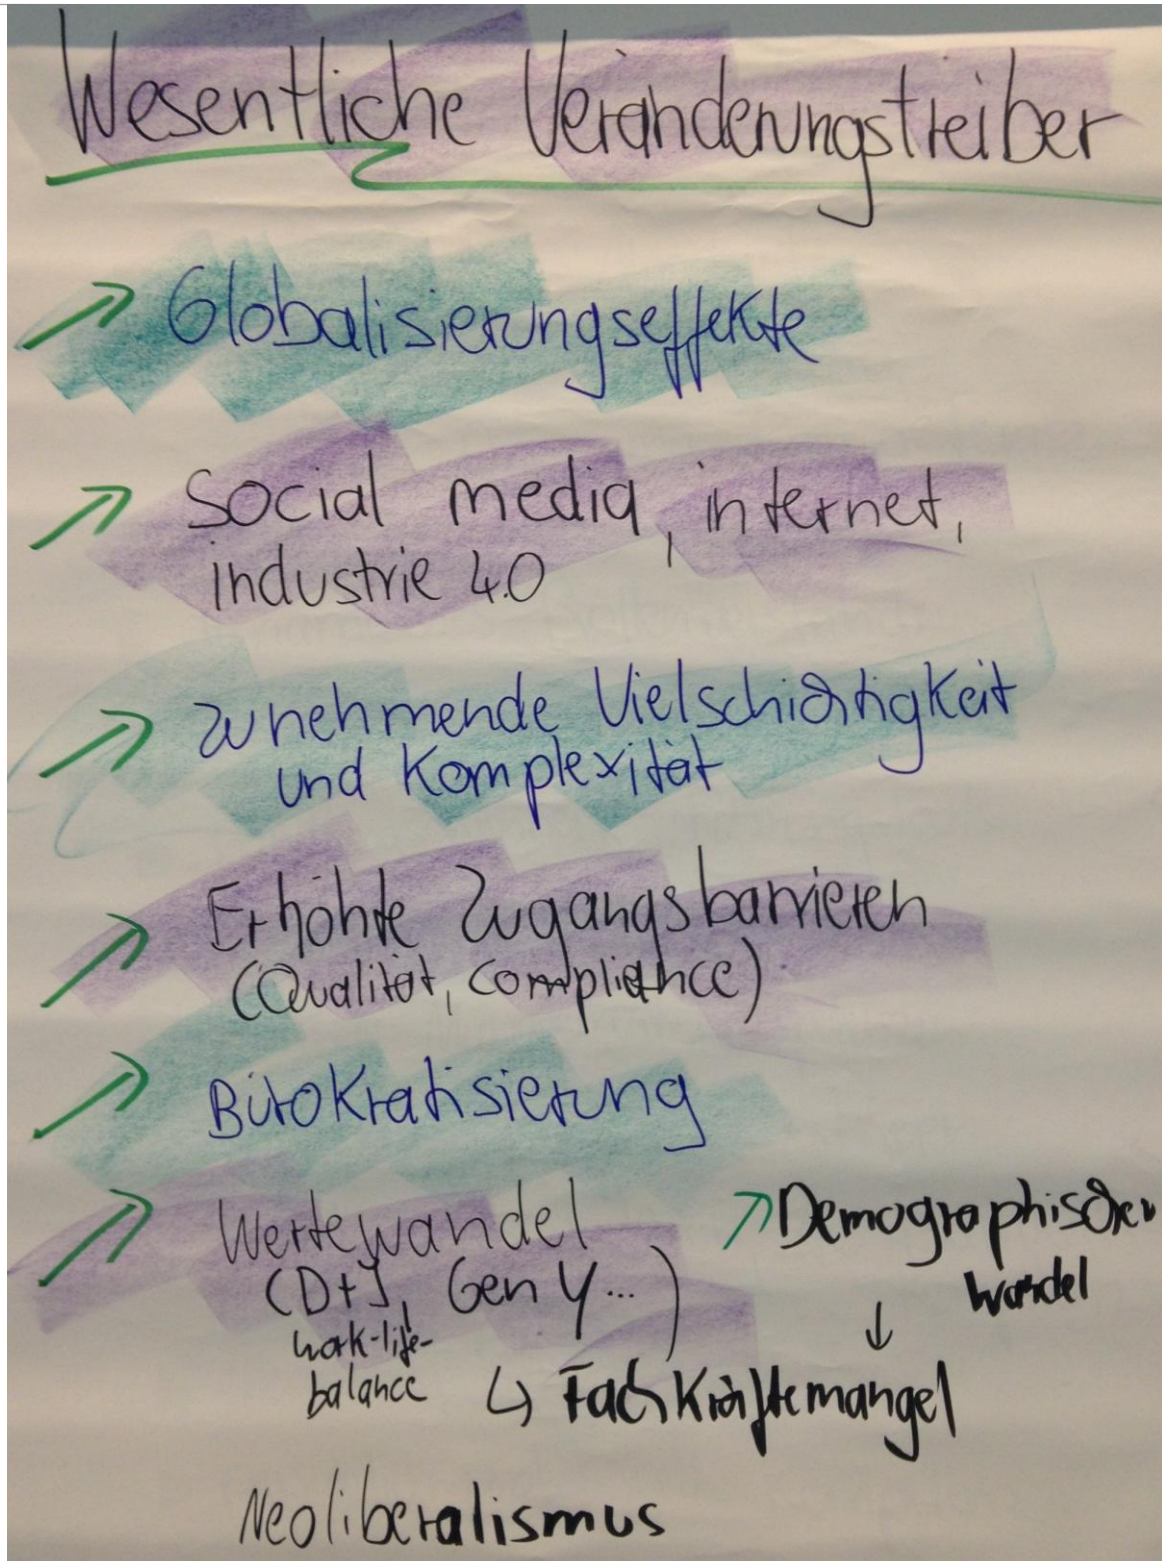 Wesentliche Veränderungstreiber
Globalisierungseffekte
Social media, internet,
industrie 4.0
zunehmende Vielschichtigkeit
und Komplexität
Erhöhte Zugangsbarrieren
(Qualität, compliance)
Bürokratisierung
Wertewandel
(D+J, Gen Y...)
work-life-
balance
Demographischer
wandel
↓
↳ Fachkräftemangel
Neoliberalismus